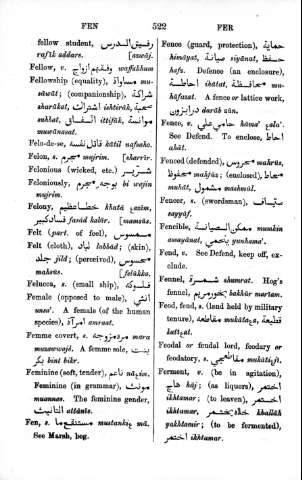 FEN 522 FER
fellow student, رفيق الدرس
rafik addars. [azwáj.
Fellow, v. وفّق; ازواج waffakhum
Fellowship (equality), مساواة mu-
sáwát; (companionship), شراكة
sharákat, اشتراك ishtirák, صحبة
suhbat, اتفاق ittifák, موانسة
muwánasat.
Felo-de-se, قاتل نفسه kátil nafsahu.
Felon, s. مجرم mujrim. [sharrír.
Felonious (wicked, etc.) شرير
Feloniously, بوجه مجرم bi wajin
mujrim.
Felony, خطا عظيم khatá ạazím,
فساد كبير fasád kabír. [mamsús.
Felt (part. of feel), ممسوس
Felt (cloth), لباد labbád; (skin),
جلد jild; (perceived), محسوس
mahsús. [felúkka.
Felucca, s. (small ship), فلوكة
Female (opposed to male), انثي
unsa'. A female (of the human
species), امراة amraat.
Femme covert, s. مرة مزوجة mara
muzawwaja. A femme sole, بنت
بكر bint bikr.
Feminine (soft, tender), ناعم náạim.
Feminine (in grammar), مونث
muannas. The feminine gender,
التانيث attánís.
Fen, s. مستنقع ما mustankiạ má.
See Marsh, beg.
Fence (guard, protection), حماية
himáyat, صيانة siyánat, حفظ
hafz. Defence (an enclosure),
احاطة ihátat, محافظة mu-
háfazat. A fence or lattice work,
درابزون daráb zún.
Fence, v. حامي علي háma' ạala'.
See Defend. To enclose, احاط
ahát.
Fenced (defended), محروس mahrús,
محفوظ mahfúz; (enclosed), محاط
muhát, مشمول mashmúl.
Fencer, s. (swordsman), سيّاف
sayyáf.
Fencible, ممكن الصيانة mumkin
assayánat, يحمي yunhama'.
Fend, v. See Defend, keep off, ex-
clude.
Fennel, s. شمرة shumrat. Hog's
fennel, بخور مريم bakhúr martam.
Feod, feud, s. (land held by military
tenure) مقاطعة mukátaạa, قطيعة
katíạat.
Feodal or feudal lord, feodary or
feodatory, s. مقاطعجي mukátiạjí.
Ferment, v. (be in agitation),
هاج háj; (as liquors), اختمر
ikhtamar; (to leaven), اختمر
ikhtamar, خلاه يختمر khalláh
yakhtamir; (to be fermented),
اختمر ikhtamar.